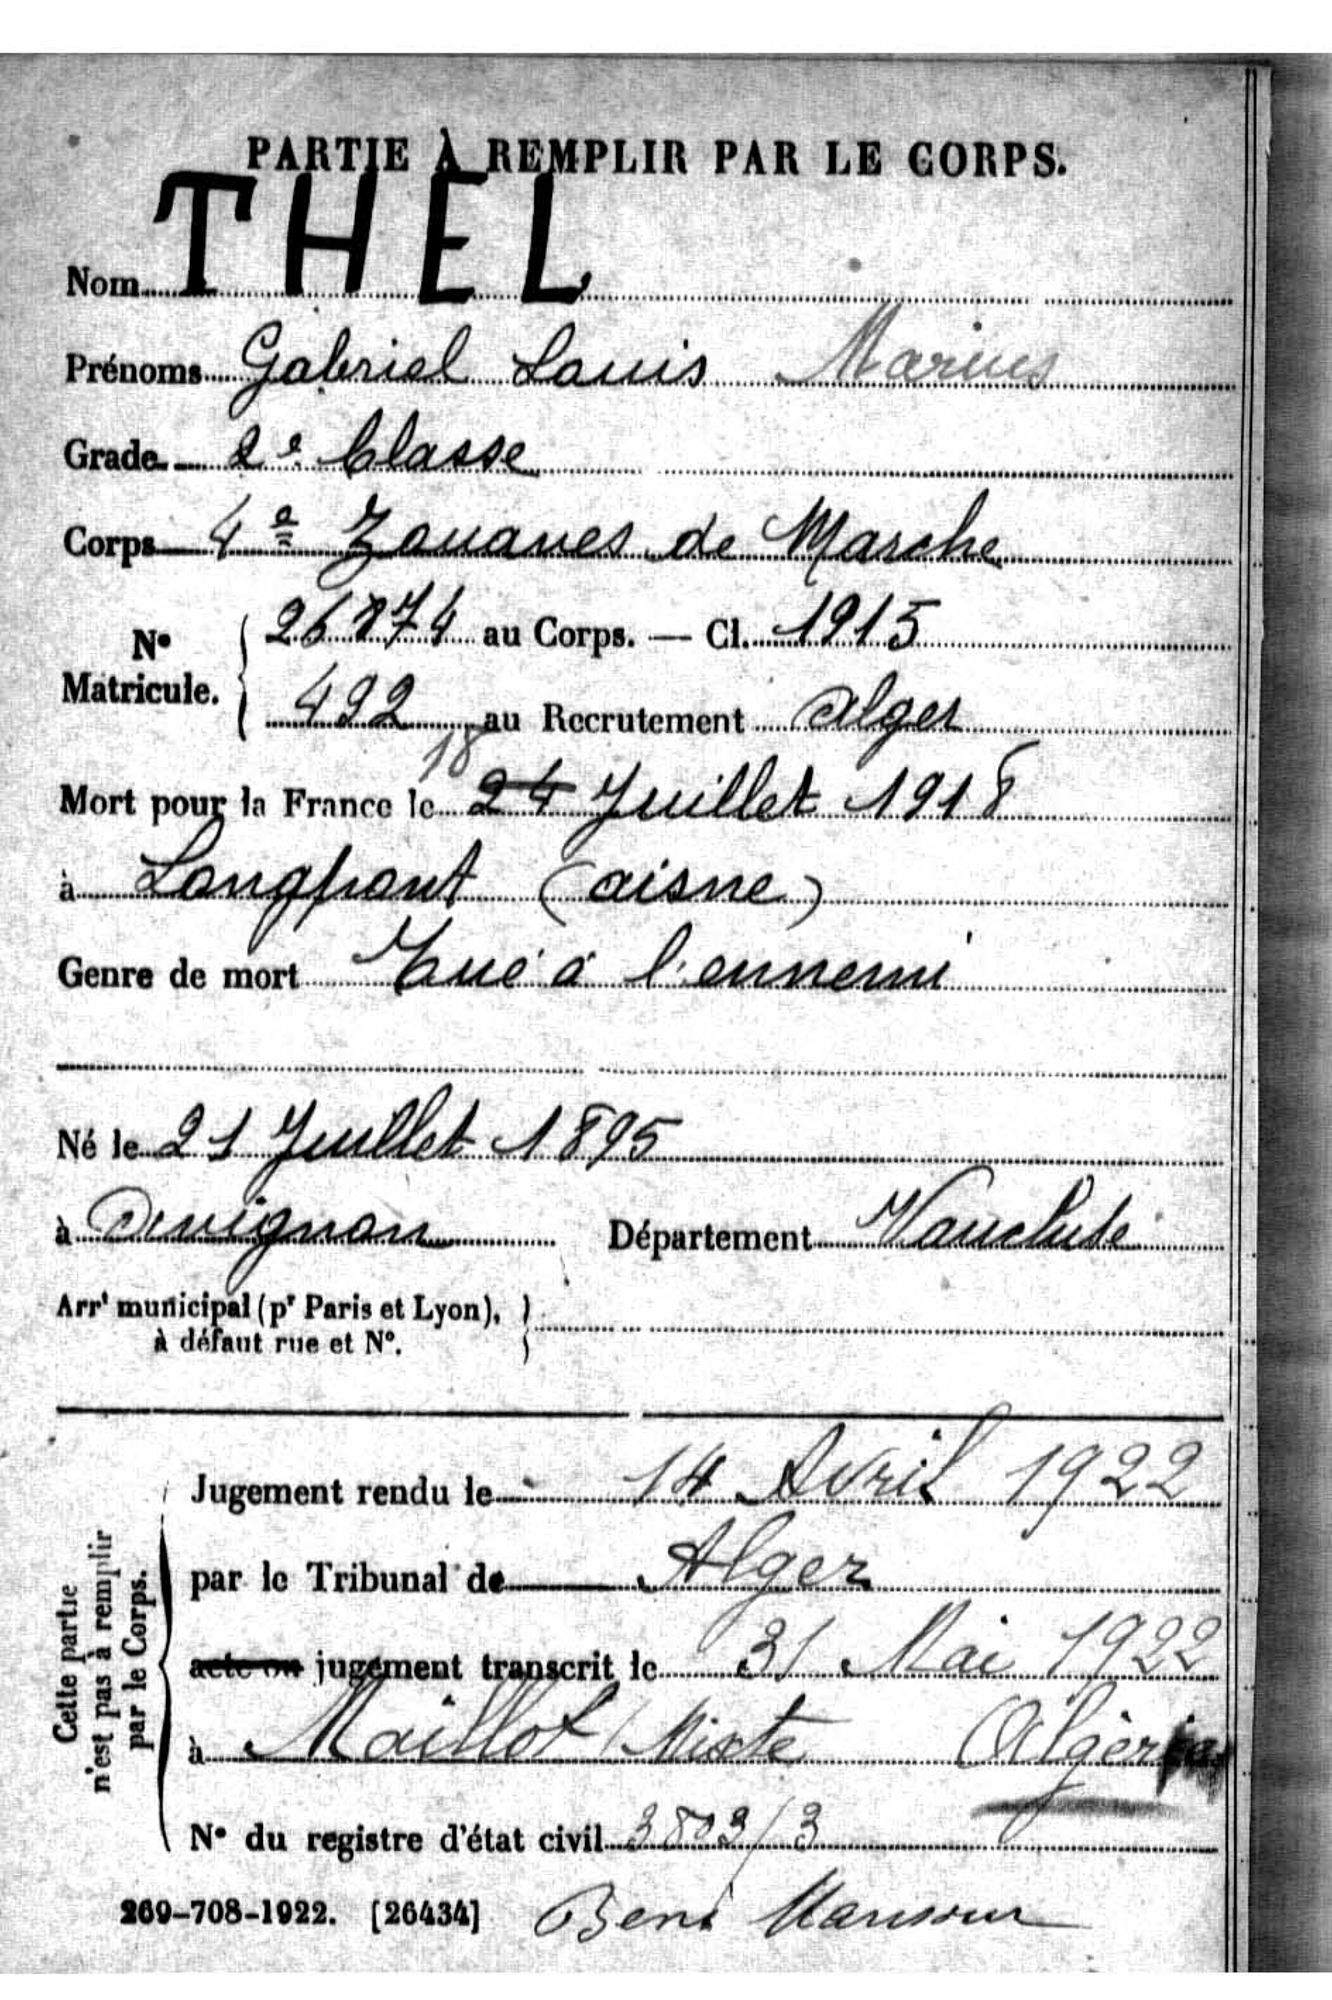 PARTIE À REMPLIR PAR LE CORPS.
Nom THEL
Prénoms Gabriel Louis Marius
Grade 2e Classe
Corps 4e Zouaves de Marche
No Matricule. { 26874 au Corps. — Cl. 1915
492 au Recrutement Alger
18
Mort pour la France le 24 Juillet 1918
à Longpont (aisne)
Genre de mort Tué à l'ennemi
Né le 21 Juillet 1895
à Avignon Département Vaucluse
Arrt municipal (pr Paris et Lyon), }
à défaut rue et No.
Cette partie
n'est pas à remplir
par le Corps.
Jugement rendu le 14 Avril 1922
par le Tribunal de Alger
acte ou jugement transcrit le 31 Mai 1922
à Maillot Mixte Algérie
No du registre d'état civil 3803/3
269-708-1922. [26434] Beni Mansour